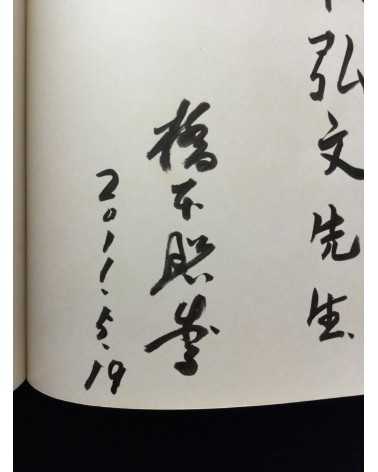 弘文先生
橋本照嵩
2011.5.19